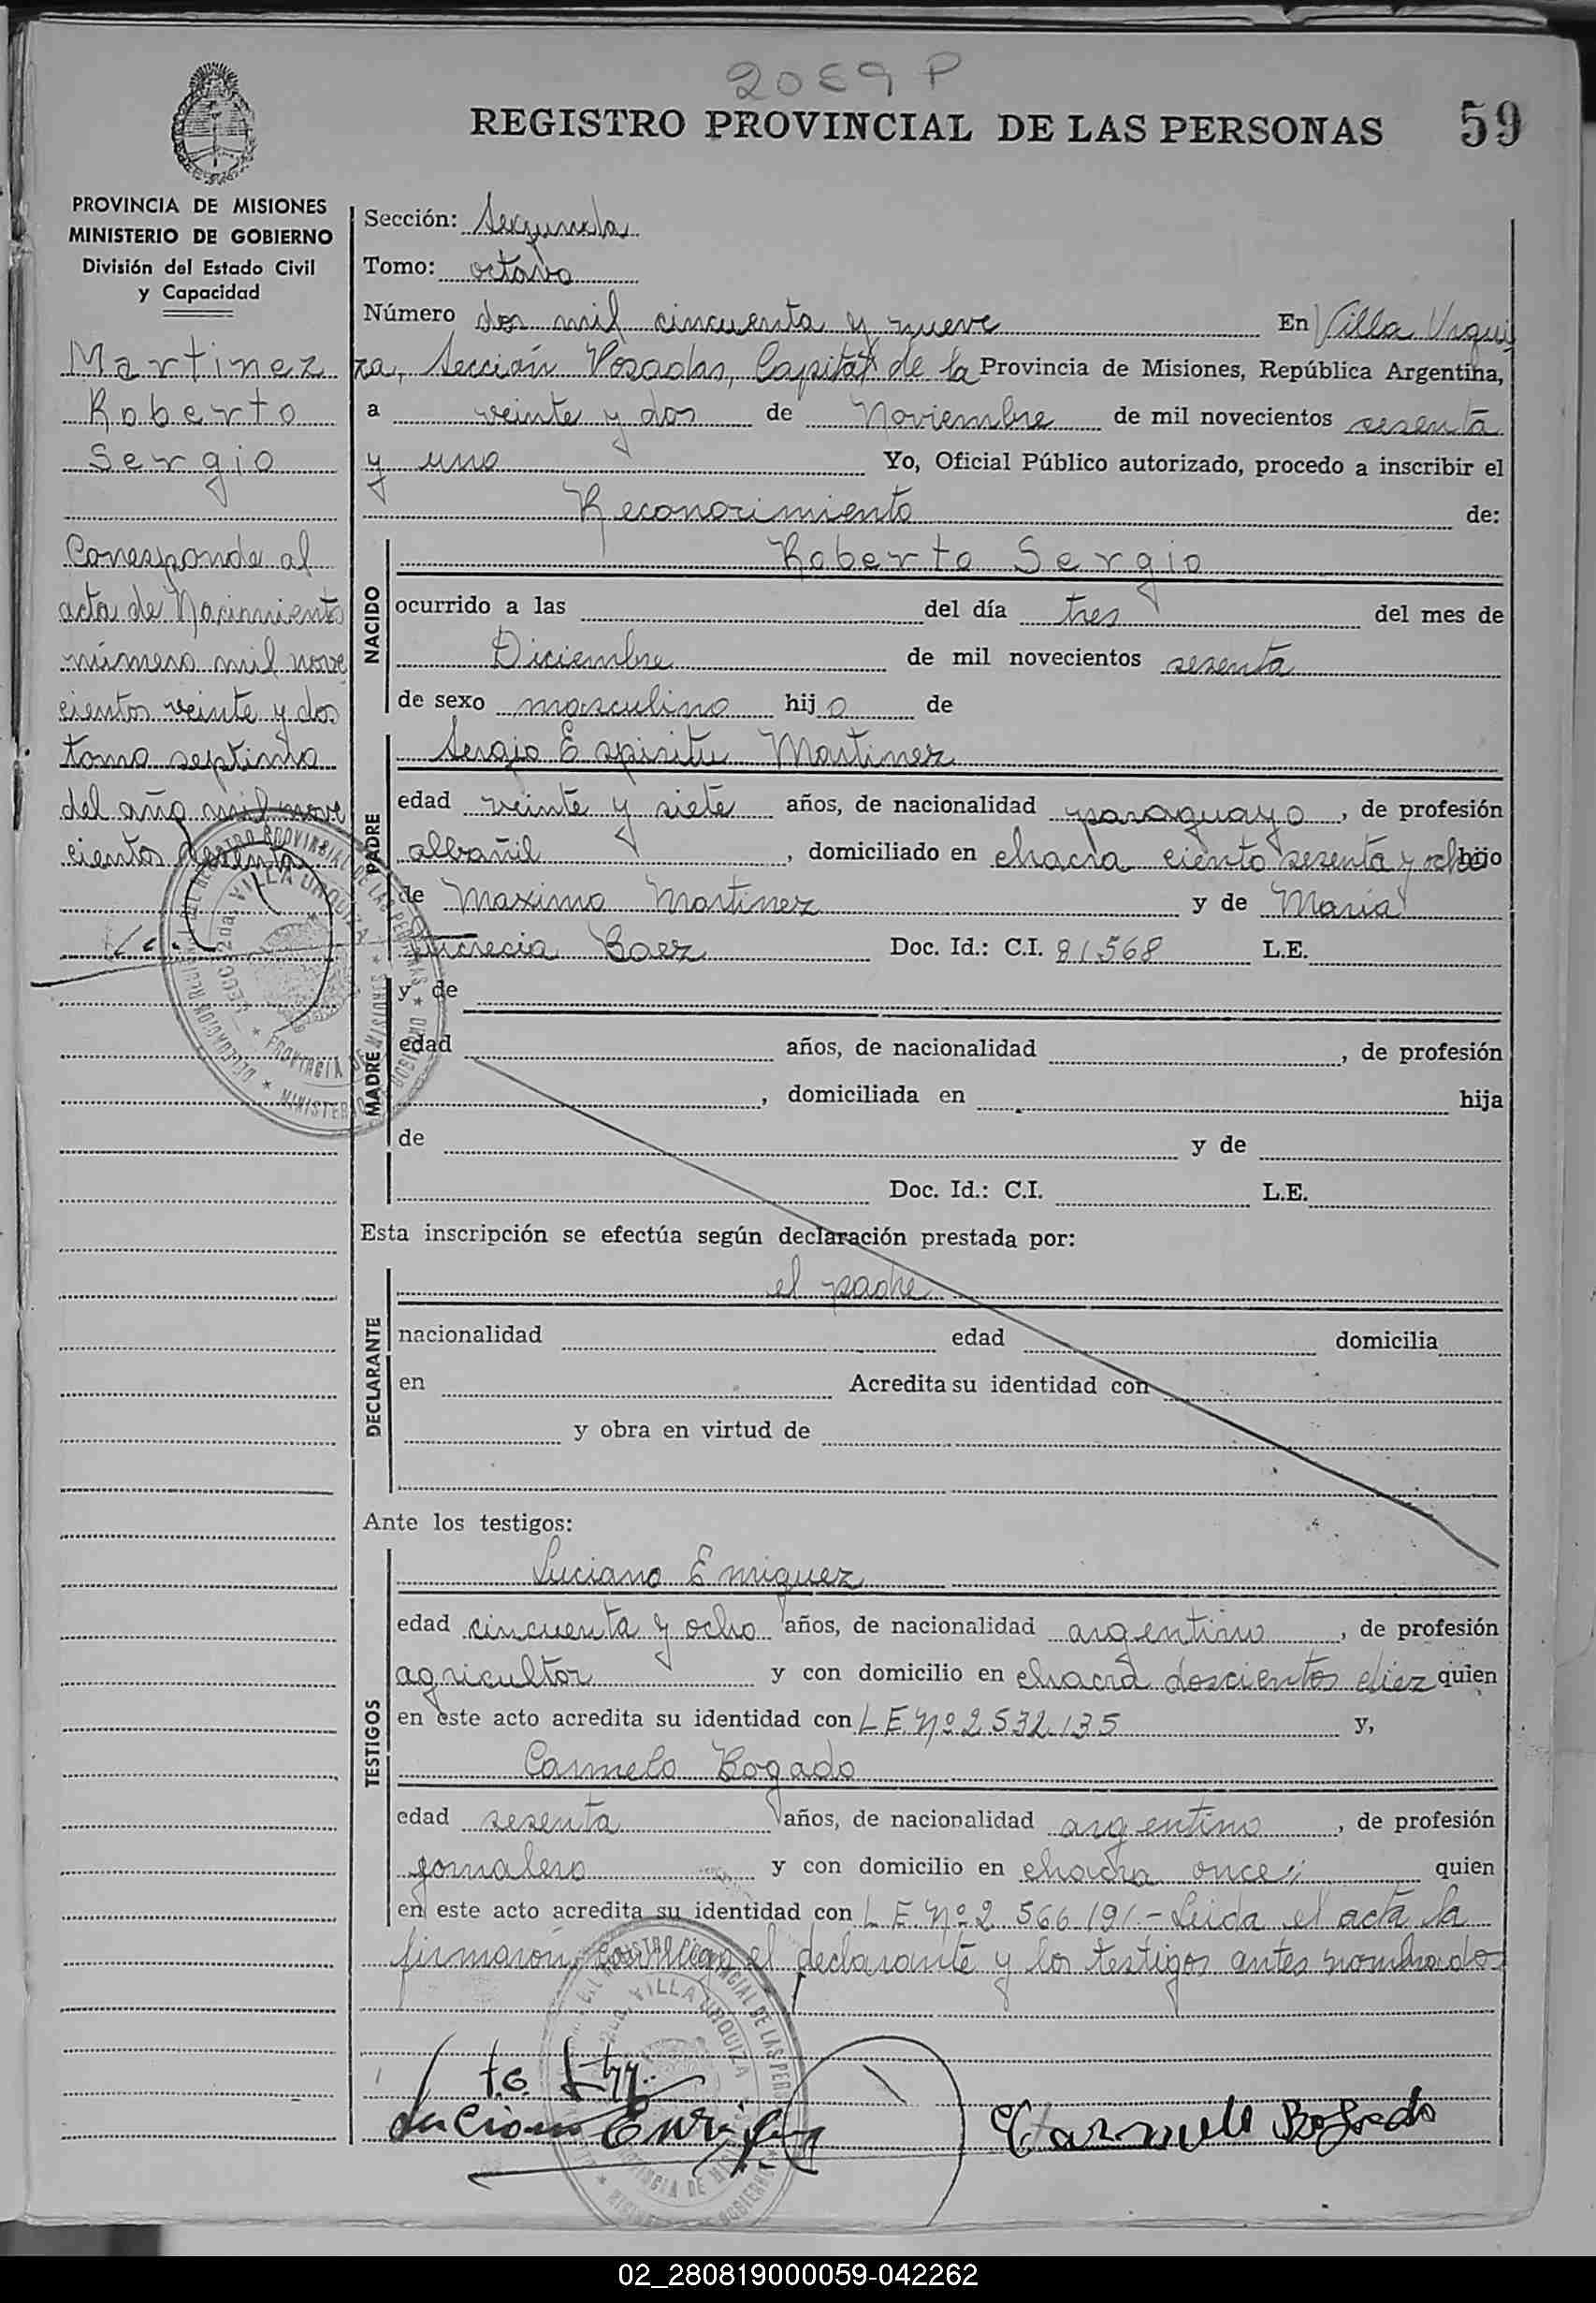 2059 P
REGISTRO PROVINCIAL DE LAS PERSONAS 59
PROVINCIA DE MISIONES
MINISTERIO DE GOBIERNO
División del Estado Civil
y Capacidad
Martinez
Roberto
Sergio
Corresponde al
acta de Nacimiento
número mil nove
cientos veinte y dos
tomo septimo
del año mil nove
cientos sesenta
Sección: Segunda
Tomo: octavo
Número dos mil cincuenta y nueve En Villa Urqui
za, Sección Posadas, Capital de la Provincia de Misiones, República Argentina,
a veinte y dos de Noviembre de mil novecientos sesenta
y uno Yo, Oficial Público autorizado, procedo a inscribir el
Reconocimiento de:
NACIDO
Roberto Sergio
ocurrido a las del día tres del mes de
Diciembre de mil novecientos sesenta
de sexo masculino hijo de
PADRE
Sergio Espiritu Martinez
edad veinte y siete años, de nacionalidad paraguayo, de profesión
albañil, domiciliado en chacra ciento sesenta y ocho hijo
de Maximo Martinez y de María
Lucrecia Baez Doc. Id.: C.I. 81568 L.E.
MADRE
y de
edad años, de nacionalidad , de profesión
, domiciliada en hija
de y de
Doc. Id.: C.I. L.E.
Esta inscripción se efectúa según declaración prestada por:
DECLARANTE
el padre
nacionalidad edad domicilia
en Acredita su identidad con
y obra en virtud de
Ante los testigos:
TESTIGOS
Luciano Enriquez
edad cincuenta y ocho años, de nacionalidad argentino, de profesión
agricultor y con domicilio en chacra doscientos diez quien
en este acto acredita su identidad con L E Nº 2.532.135 y,
Carmelo Bogado
edad sesenta años, de nacionalidad argentino, de profesión
jornalero y con domicilio en chacra once; quien
en este acto acredita su identidad con L E Nº 2 566 191.- Leida el acta la
firmaron, conmigo el declarante y los testigos antes nombrados
Luciano Enriquez
Carmelo Bogado
02_280819000059-042262